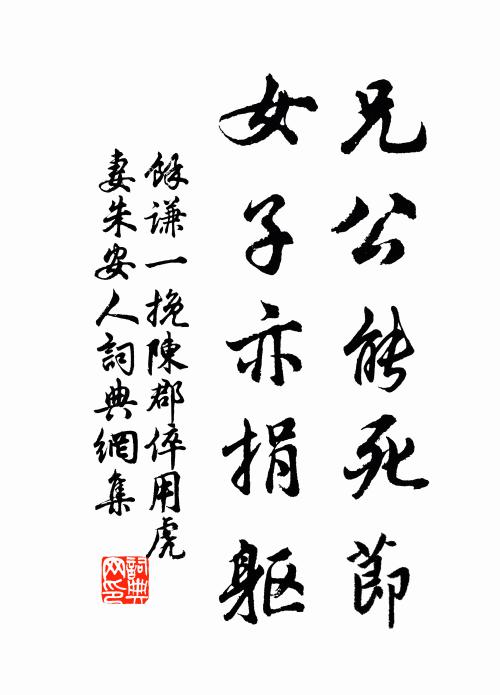 兄公能死節
女子亦捐軀
餘謙一挽陳郡倅用虎
妻朱安人詞典網集
詞典網印